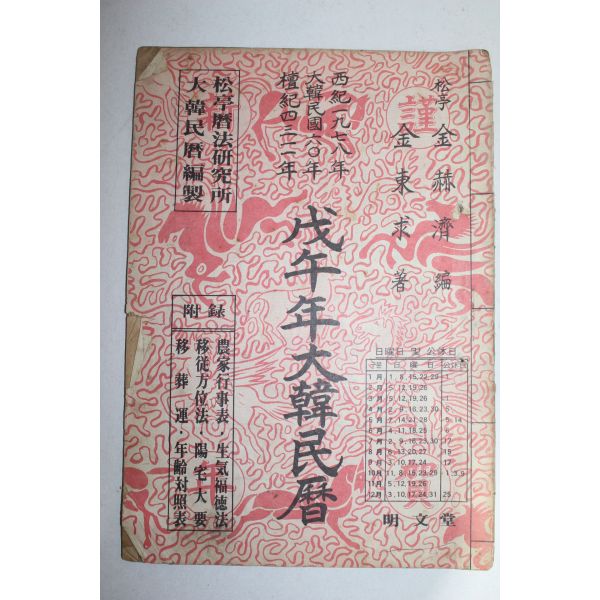 松亭 金赫濟 編
金東求 著
謹
西紀一九七八年
大韓民國六〇年
檀紀四三一一年
戊午年大韓民曆
松亭曆法硏究所
大韓民曆編製
附錄
農家行事表·生氣福德法
移徙方位法 陽宅大要
移葬運 年齡対照表
日曜日 및 公休日
1月 1, 8, 15, 22, 29
2月 5, 12, 19, 26
3月 5, 12, 19, 26
4月 2, 9, 16, 23, 30 5
5月 7, 14, 21, 28 5, 14
6月 4, 11, 18, 25 6
7月 2, 9, 16, 23, 30 17
8月 6, 13, 20, 27 15
9月 3, 10, 17, 24 17
10月 1, 8, 15, 22, 29 1, 3, 9
11月 5, 12, 19, 26
12月 3, 10, 17, 24, 31 25
明文堂